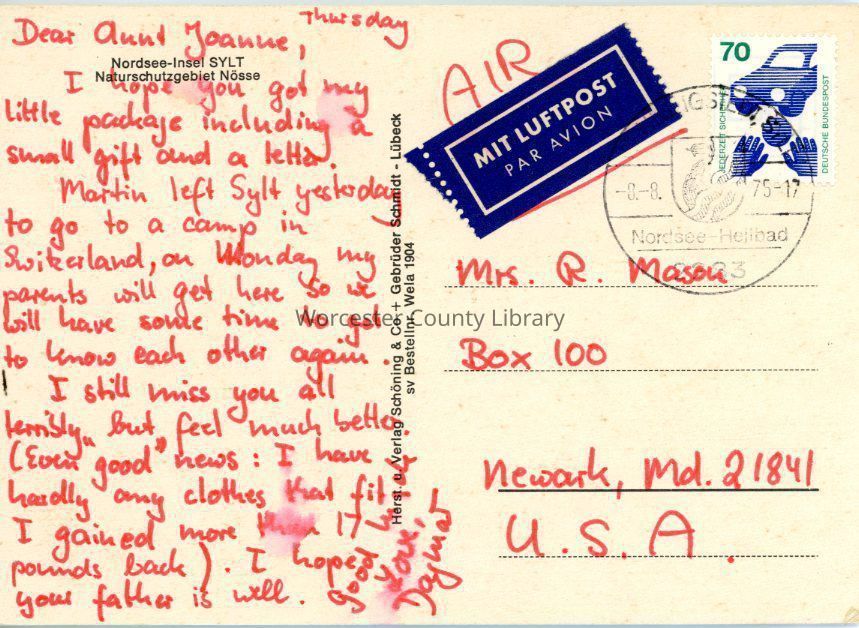 Thursday
Dear Aunt Joanne,
Nordsee-Insel SYLT
Naturschutzgebiet Nösse
I hope you got my
little package including a
small gift and a letter.
Martin left Sylt yesterday
to go to a camp in
Switzerland, on Monday my
parents will get here so we
will have some time to get
to know each other again.
I still miss you all
terribly but feel much better.
(Even "good" news: I have
hardly any clothes that fit
I gained more than 17
pounds back). I hope
your father is well.
Good
Love,
Dagmar
Herst. u. Verlag Schöning & Co + Gebrüder Schmidt - Lübeck
sv Bestellnr. Wela 1904
AIR
MIT LUFTPOST
PAR AVION
70
JEDERZEIT SICHER
DEUTSCHE BUNDESPOST
-8.-8. 75-17
Nordsee-Heilbad
Mrs. R. Mason
Box 100
Newark, Md. 21841
U.S.A.
Worcester County Library